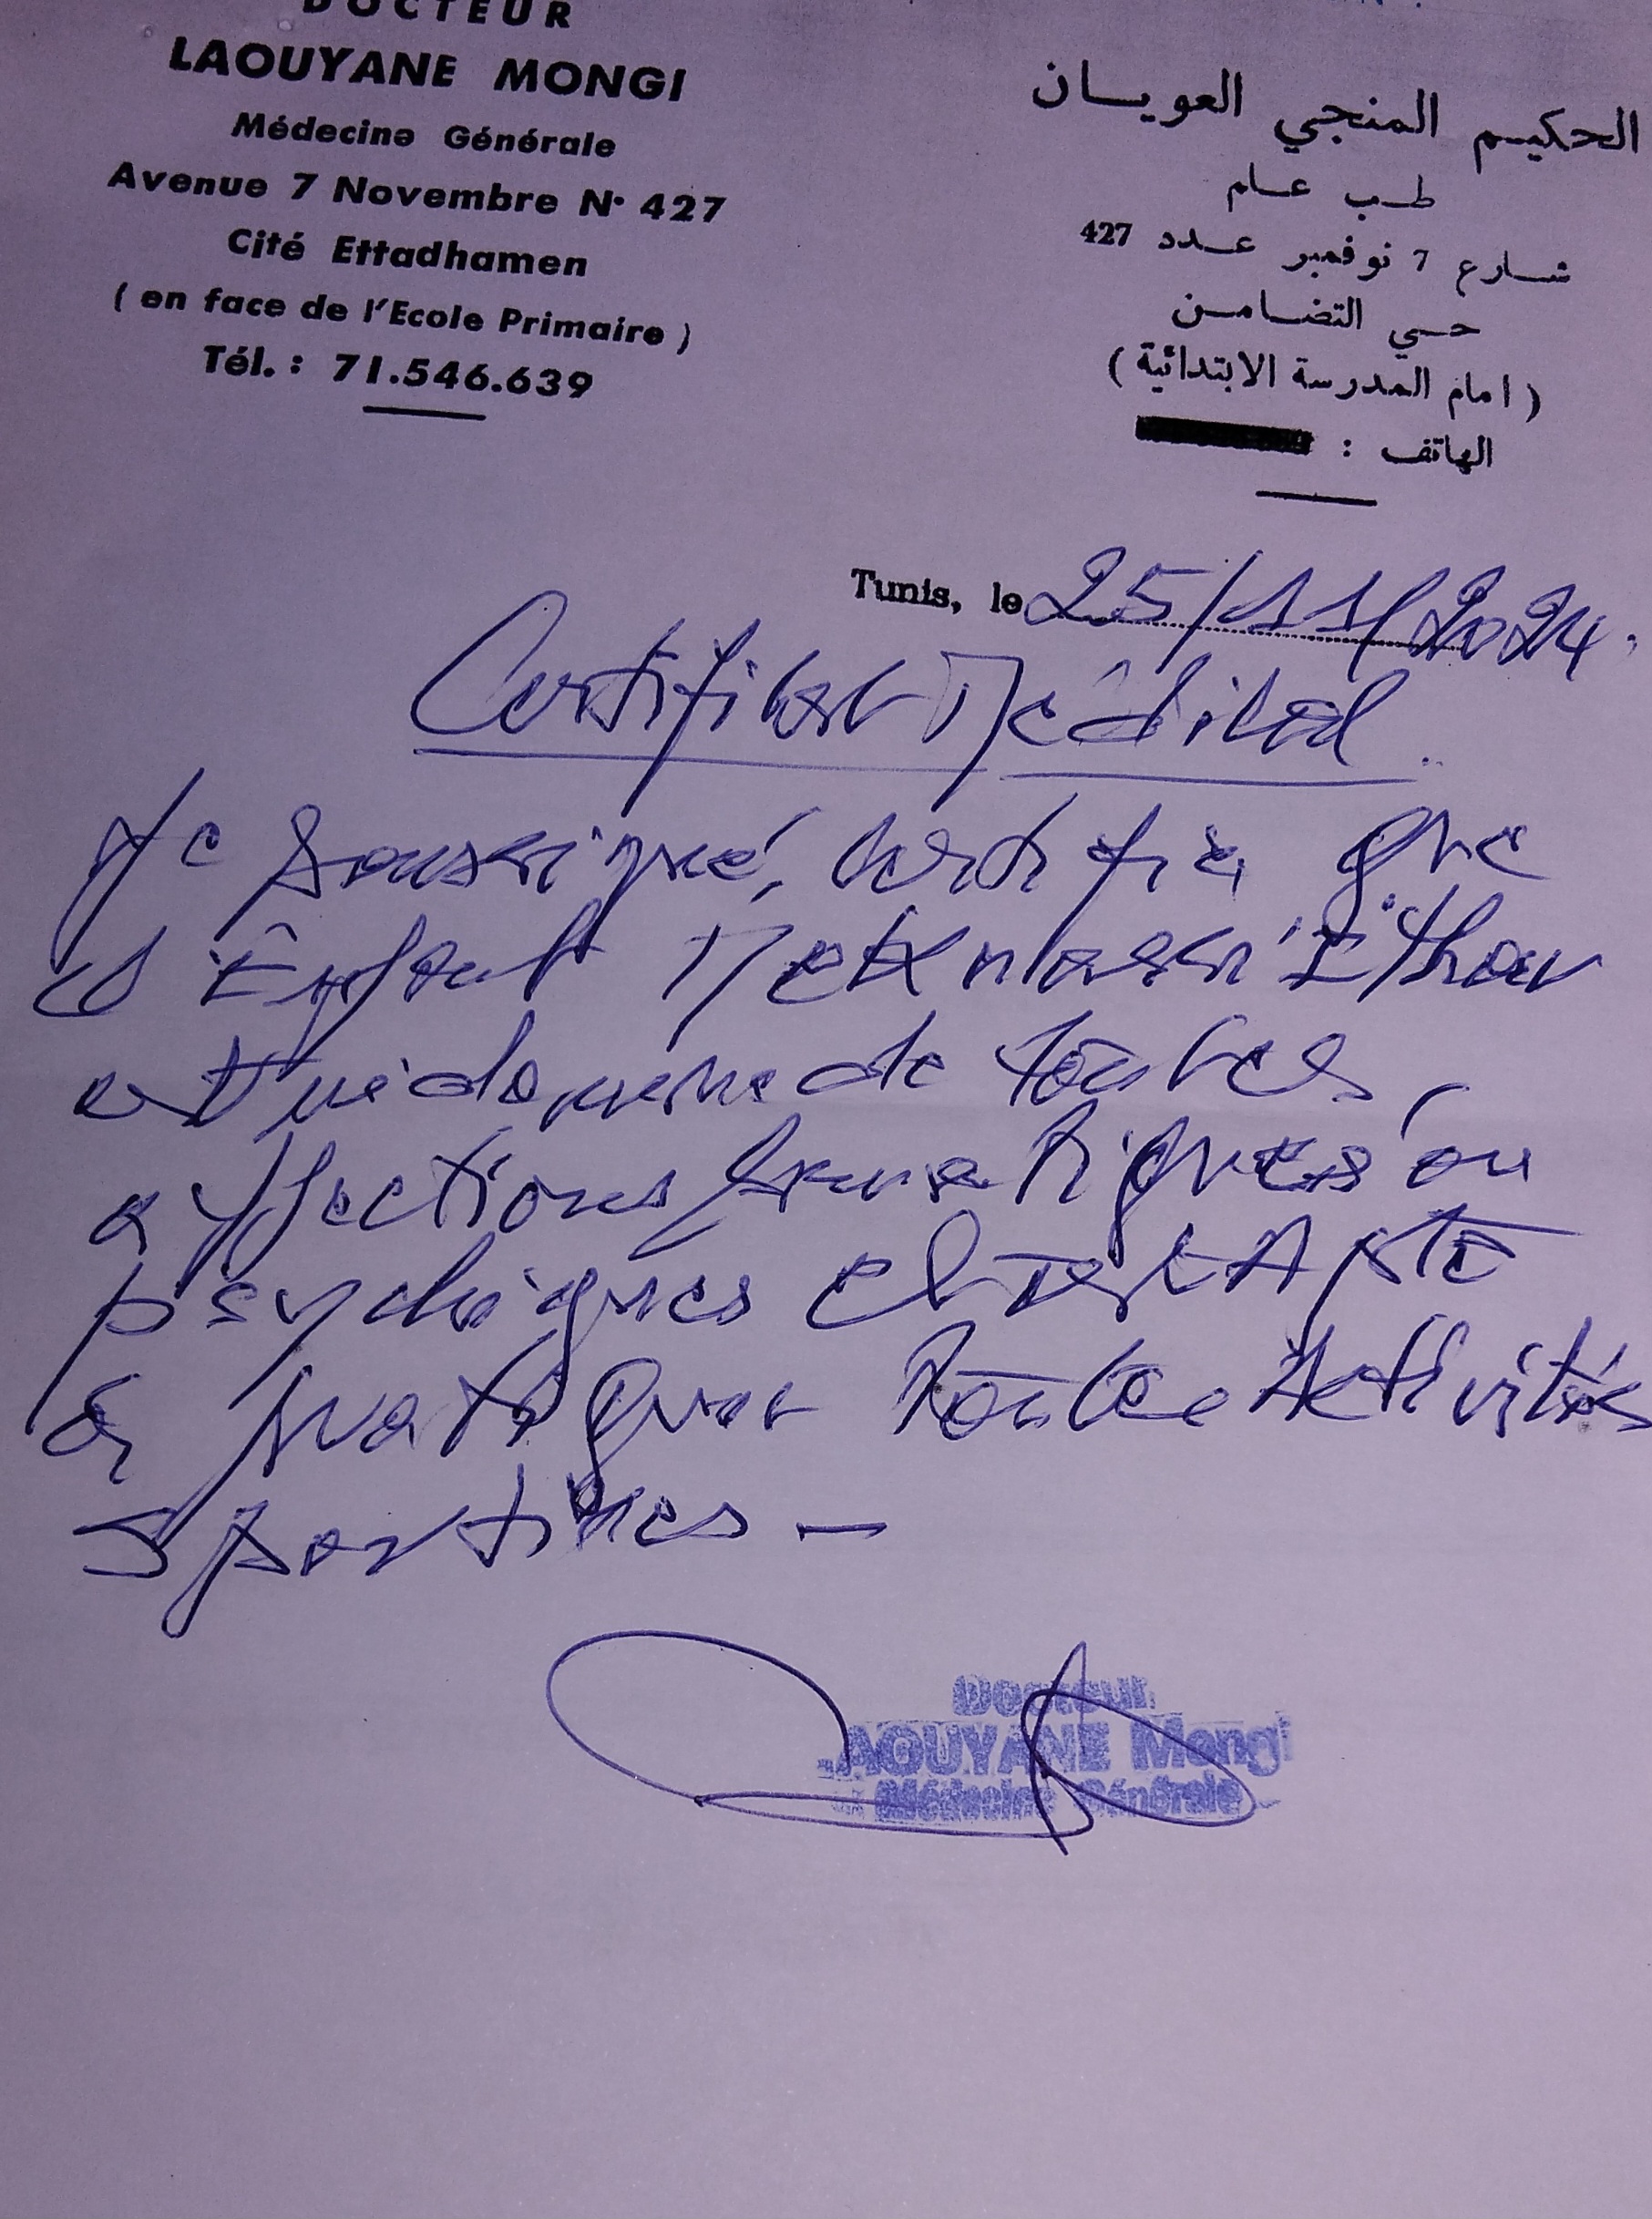 DOCTEUR
LAOUYANE MONGI
Médecine Générale
Avenue 7 Novembre N° 427
Cité Ettadhamen
( en face de l'Ecole Primaire )
Tél. : 71.546.639
الحكيم المنجي العويسان
طب عام
شارع 7 نوفمبر عدد 427
حي التضامن
( امام المدرسة الابتدائية )
الهاتف :
Tunis, le 25/11/2024.
Certificat Médical.
Je soussigné, certifie que
l'Enfant
est de toutes
affections somatiques ou
psychiques et est Apte
à pratiquer toutes Activités
Sportives —
Docteur
LAOUYANE Mongi
Médecine Générale